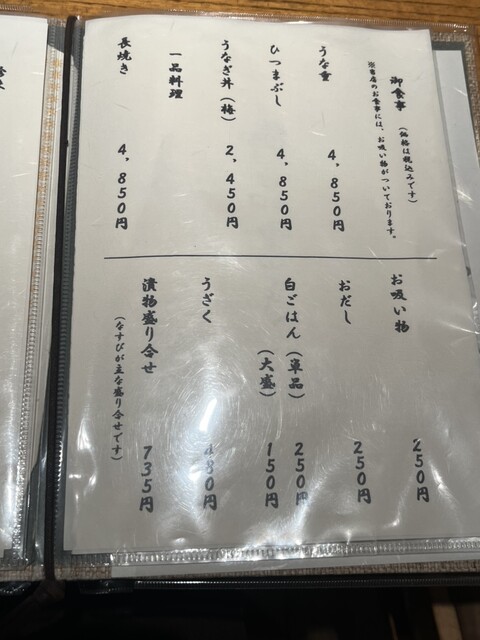 御食事 (価格は税込みです)
※当店のお食事には、お吸い物がついております。
うな重 4,850円
ひつまぶし 4,850円
うなぎ丼(梅) 2,450円
一品料理
長焼き 4,850円
お吸い物 250円
おだし 250円
白ごはん(単品) 250円
(大盛) 150円
うざく 480円
漬物盛り合せ 735円
(なすびが主な盛り合せです)